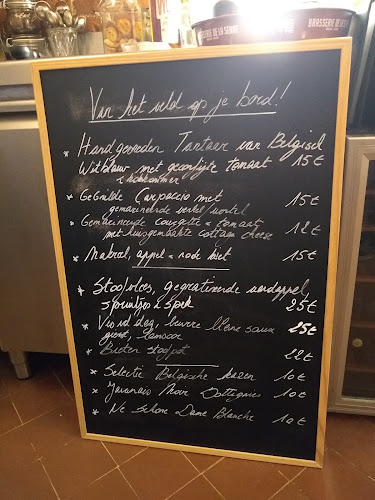 BRASSERIE DE LA SENNE
BRASSERIE DE LA
Van het veld op je bord!
Handgesneden Tartaar van Belgisch
Witblauw met gekonfijte tomaat 15€
& komkommer
Gegrilde Carpaccio met 15€
gemarineerde venkel/wortel
Gemarineerde courgette & tomaat 12€
met huisgemaakte cottage cheese
Makreel, appel & rode biet 15€
Stoofvlees, gegratineerde aardappel,
spruitjes & spek 25€
Vis vd dag, beurre blanc saus 25€
Bieten stoofpot 22€
Selectie Belgische kazen 10€
Javanais Noir 10€
Ne Schone Dame Blanche 10€